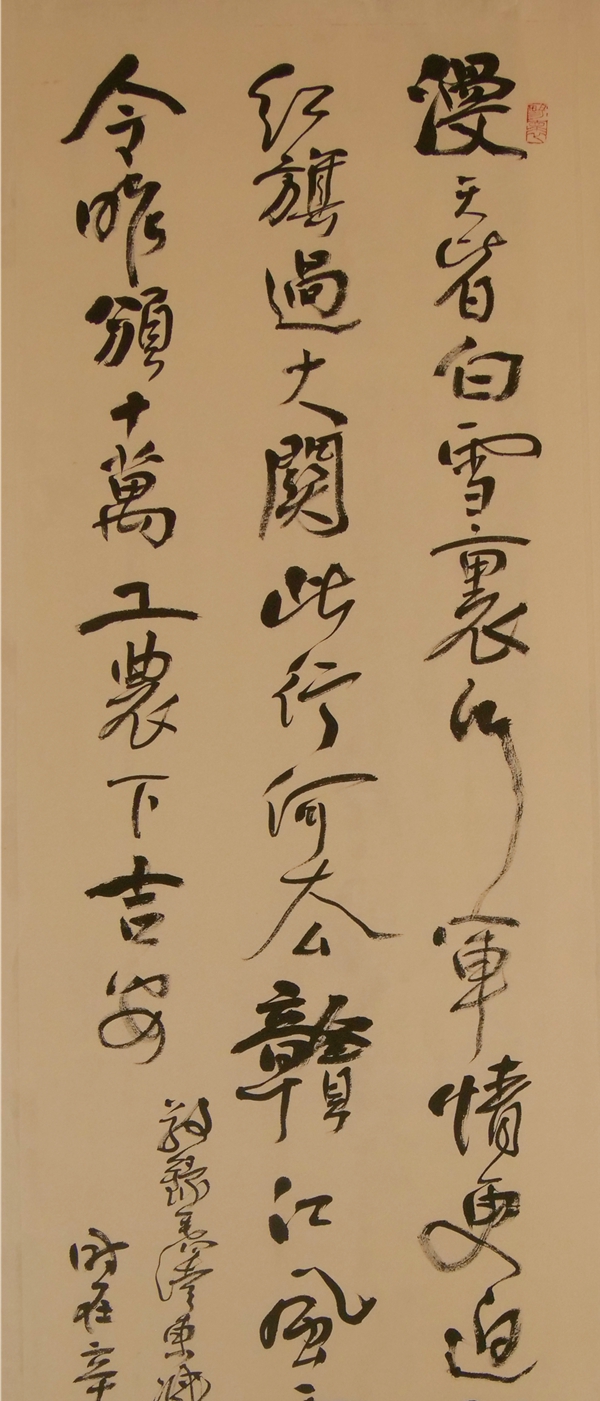 漫天皆白雪裏行軍情更迫
紅旗過大関此行何去贛江風
令昨頒十萬工農下吉安
敬錄毛澤東減
時在辛